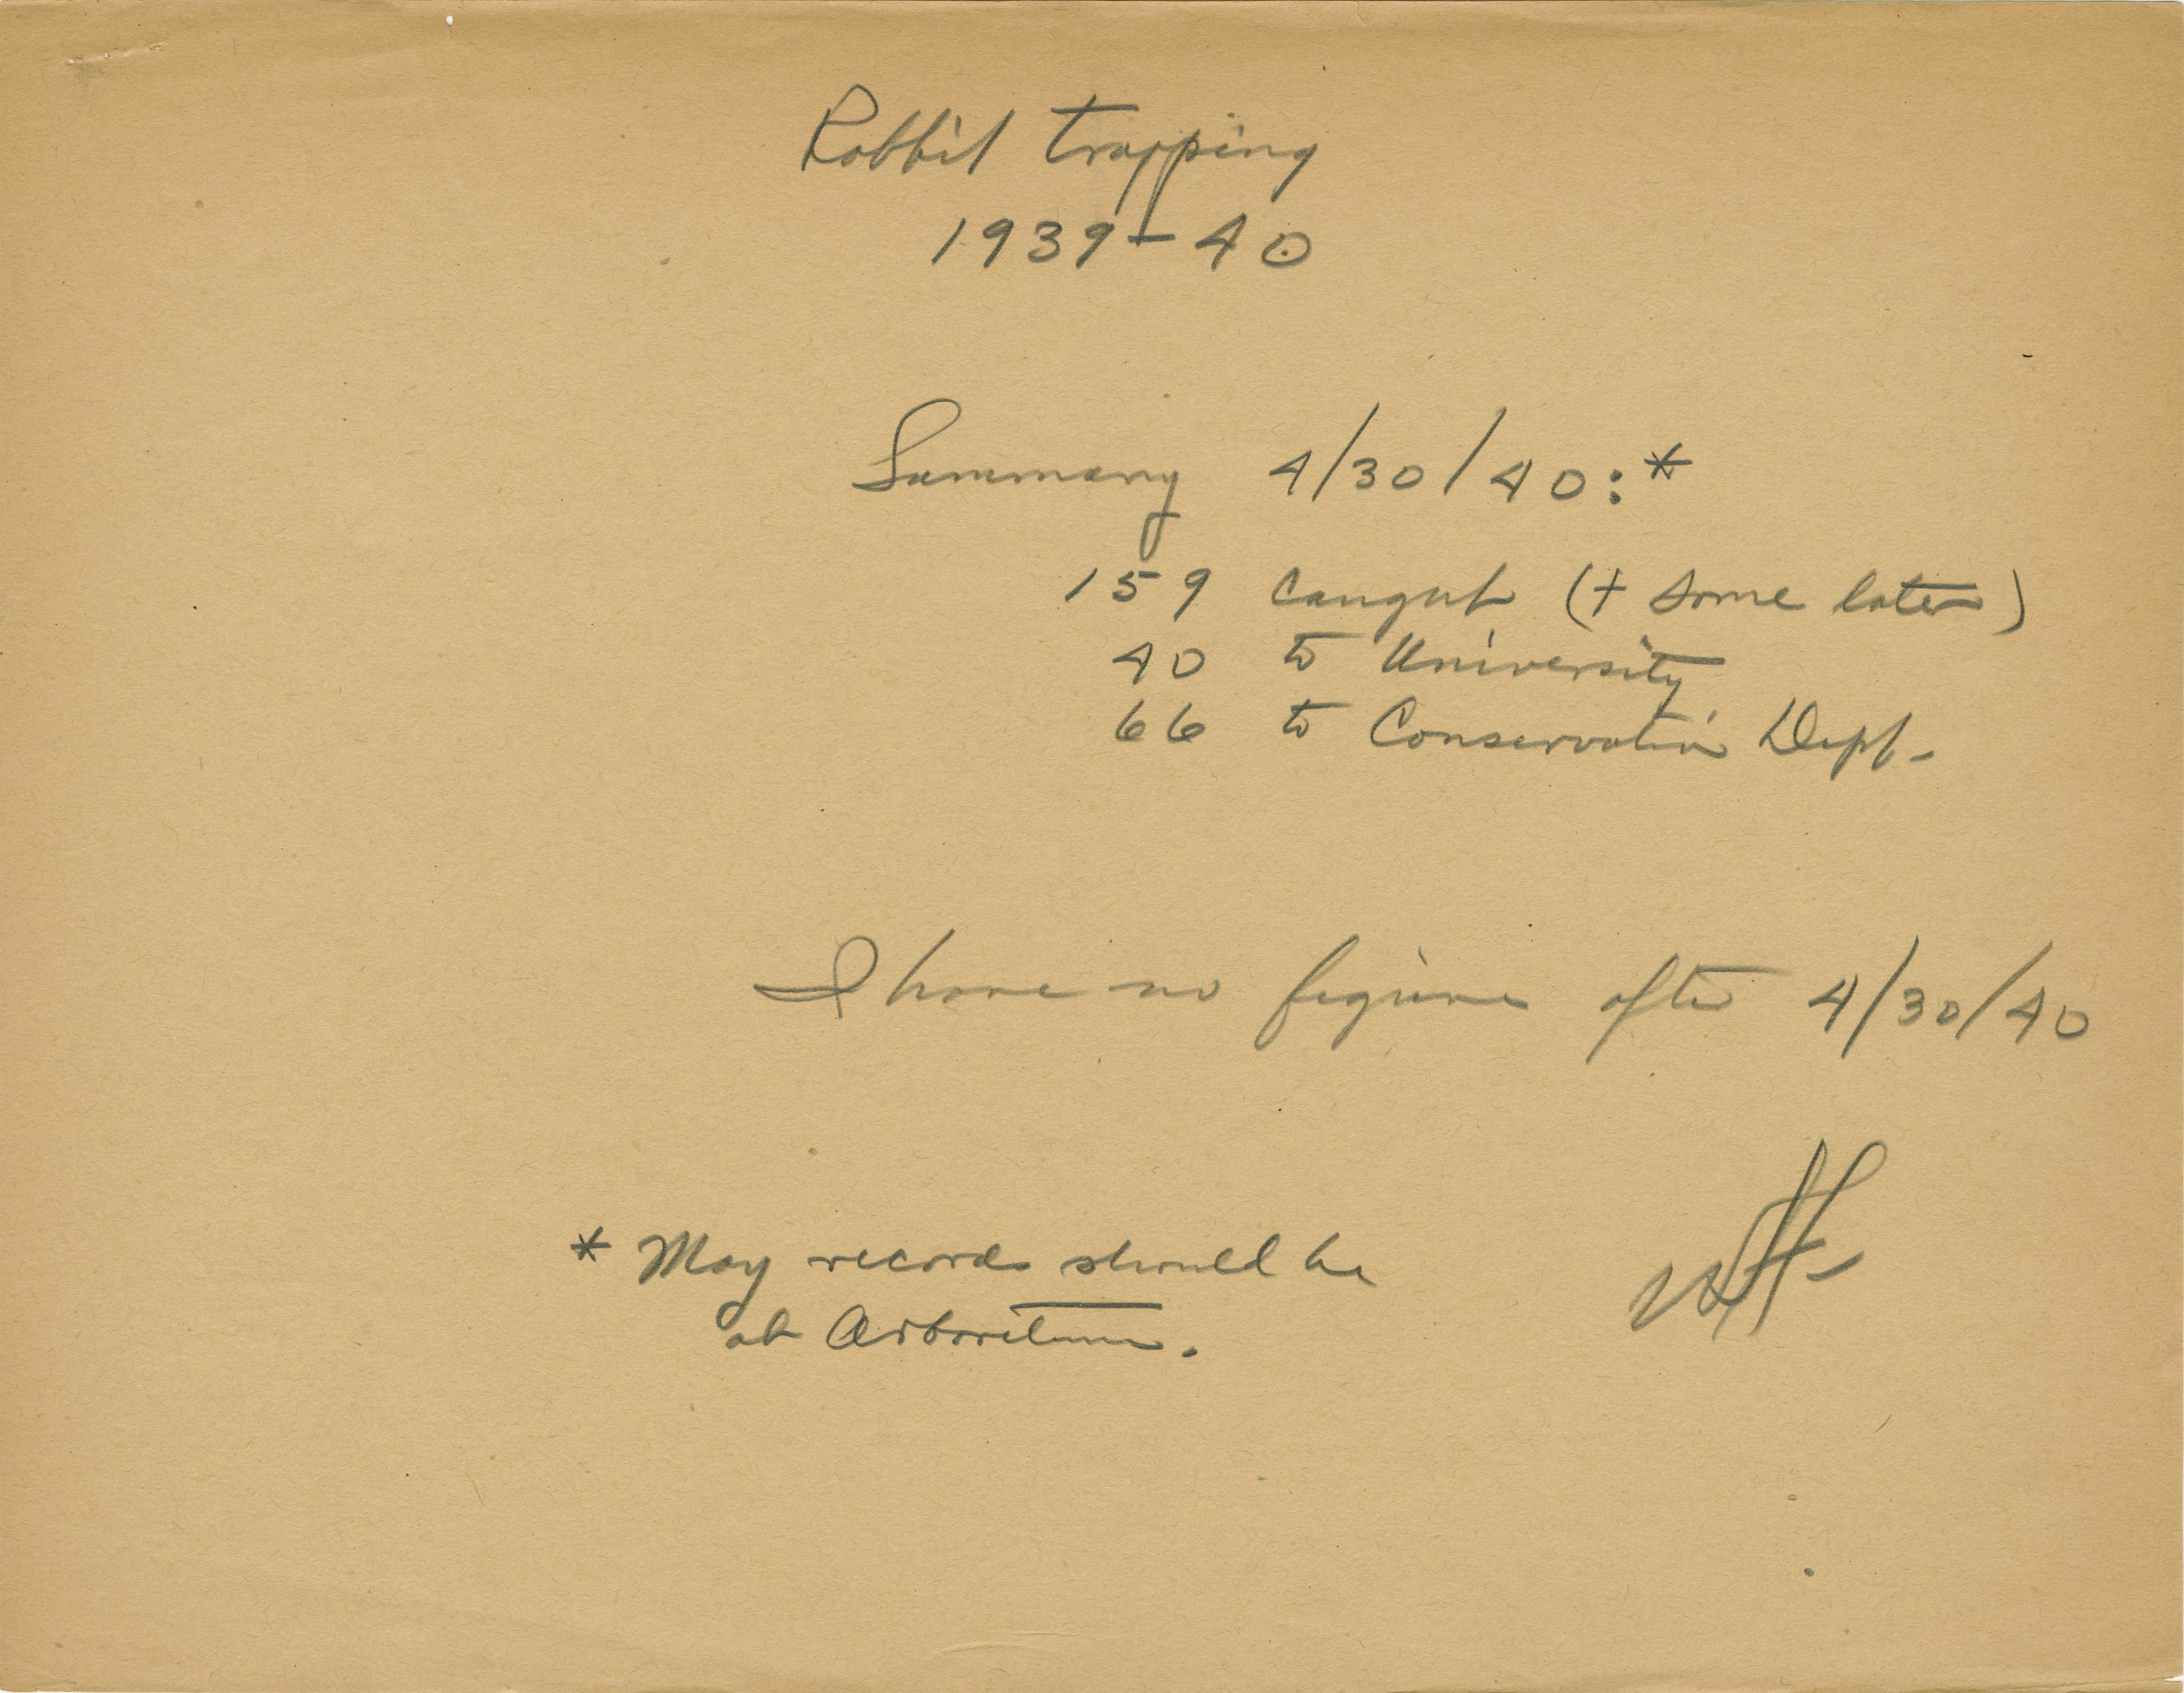 Rabbit trapping
1939-40
Summary 4/30/40:*
159 caught (+ some later)
40 to University
66 to Conservation Dept.
I have no figures after 4/30/40
* May records should be
at Arboretum.